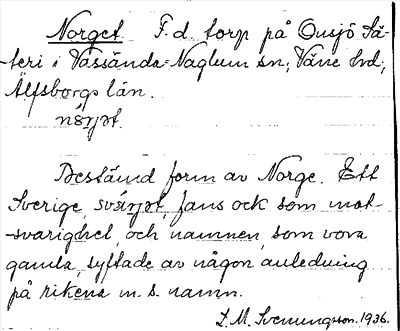 Norget. F. d. torp på Onsjö Sä-
teri i Vassända-Naglum sn; Väne hd;
Älfsborgs län.
Bestämd form av Norge. Ett
Sverige, fans ock som mot-
-svarighet, och namnen, som vora
gamla, syftade av någon anledning
på rikena m. s. namn.
L. M. Svenungsson. 1936.